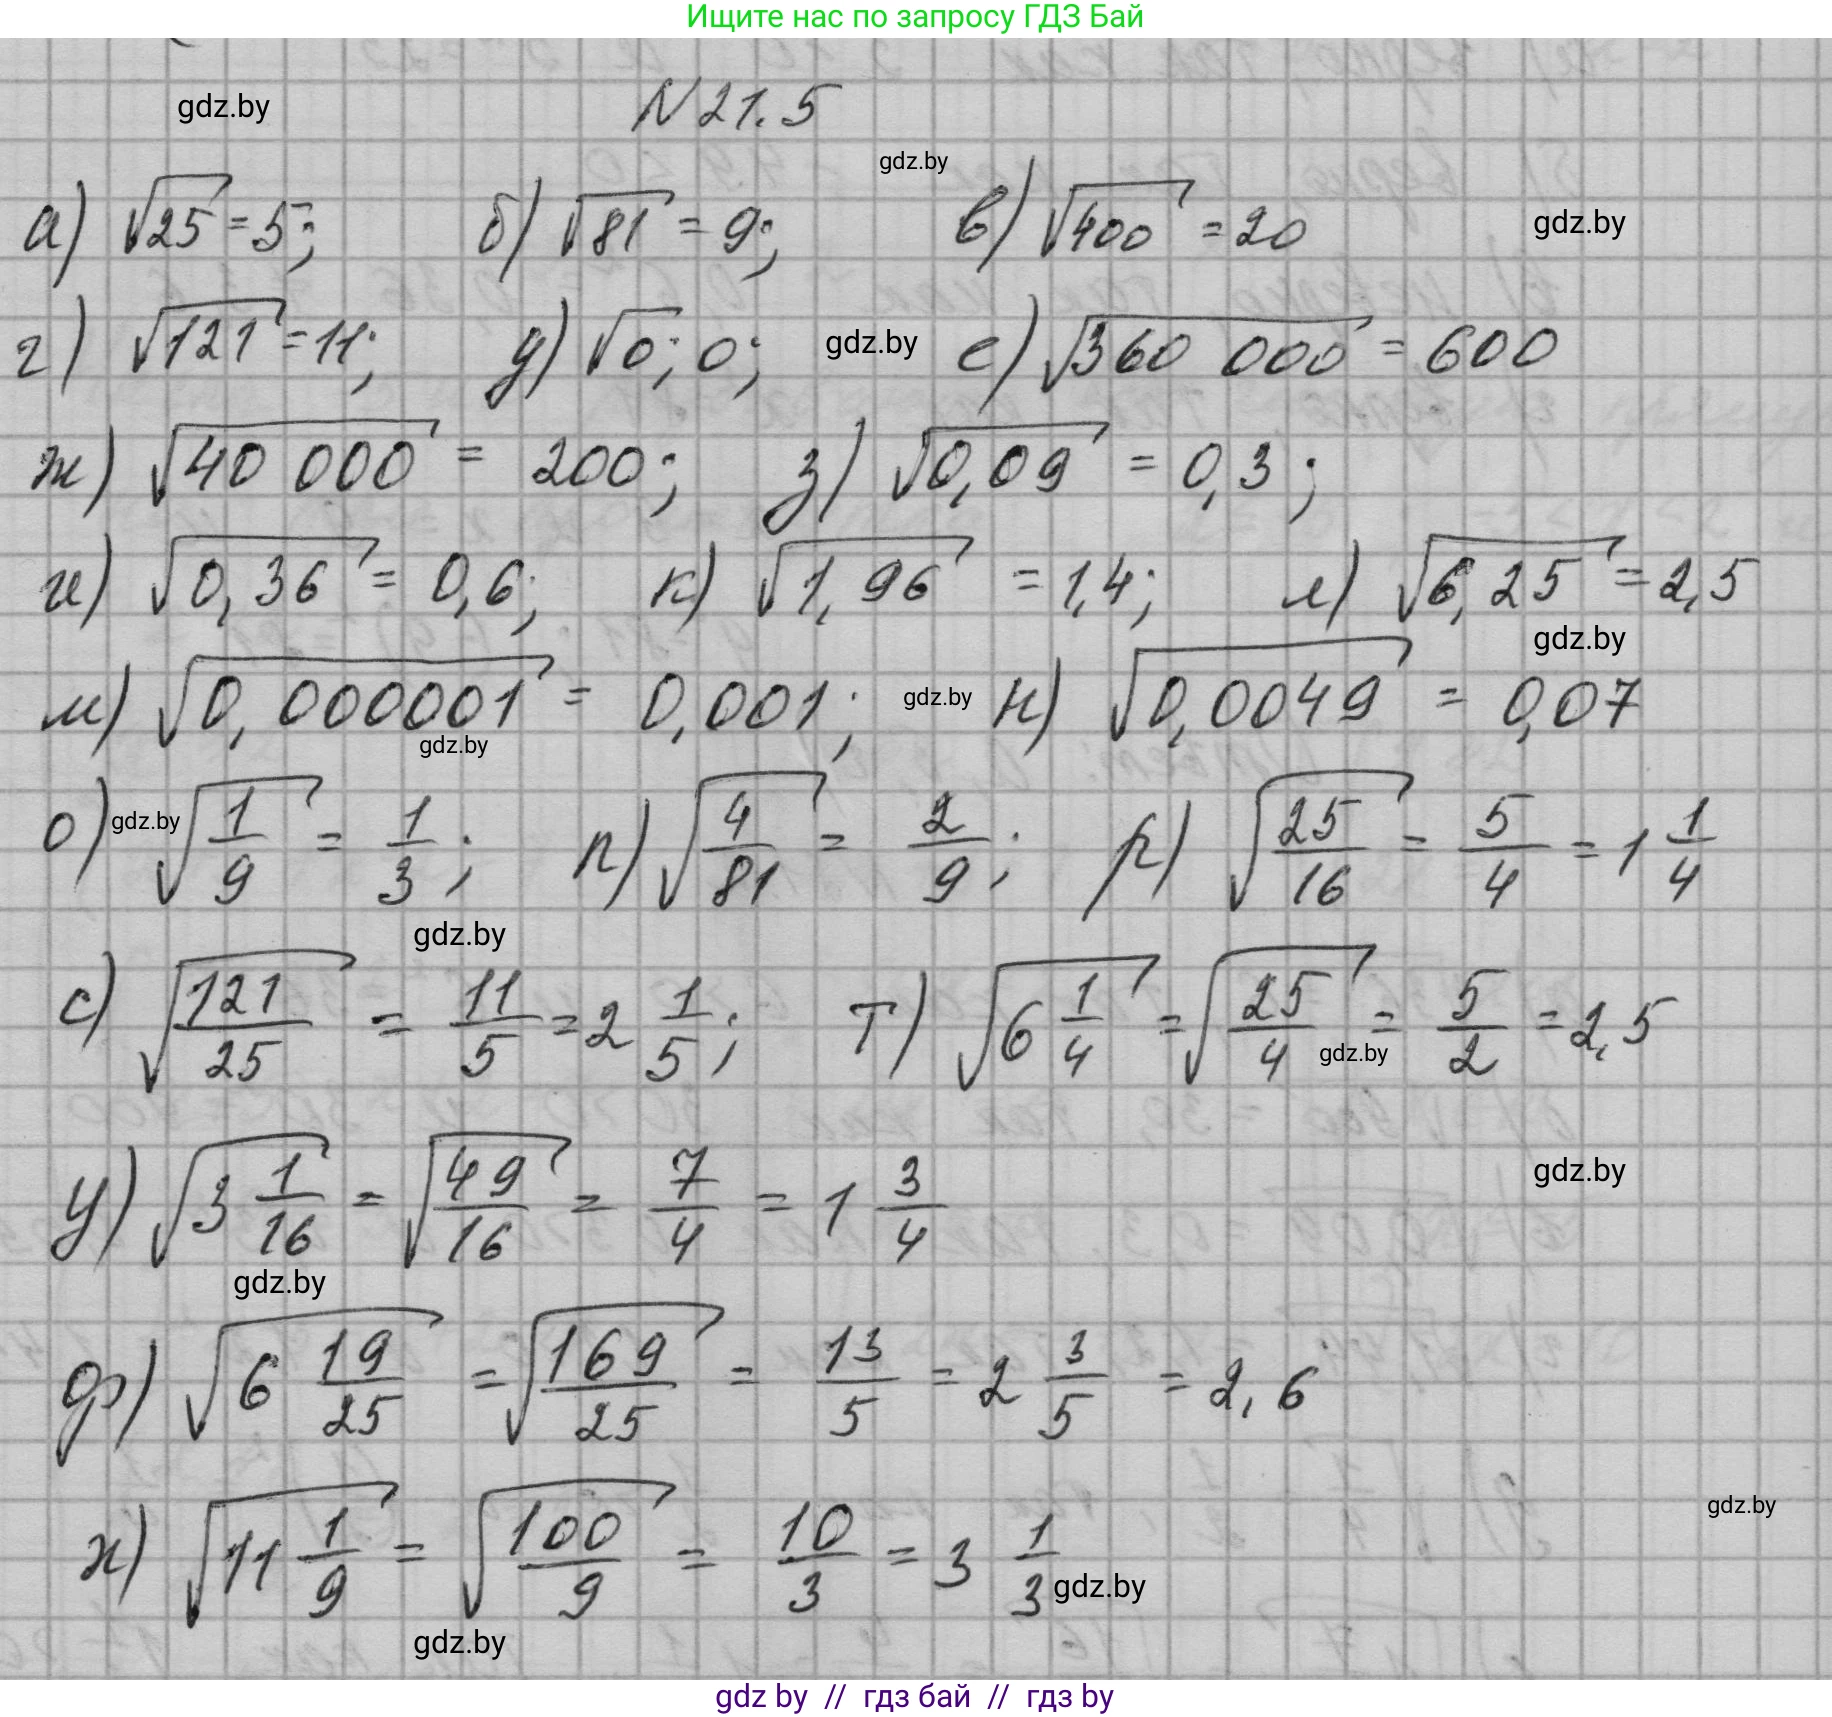 Ищите нас по запросу ГДЗ Бай
gdz.by
N 21.5
gdz.by
а) √25 = 5; б) √81 = 9; в) √400 = 20 gdz.by
г) √121 = 11; д) √0; 0; gdz.by е) √360 000 = 600
ж) √40 000 = 200; з) √0,09 = 0,3;
и) √0,36 = 0,6; к) √1,96 = 1,4; л) √6,25 = 2,5
gdz.by
м) √0,000001 = 0,001; gdz.by н) √0,0049 = 0,07
gdz.by
о) gdz.by √(1/9) = 1/3; п) √(4/81) = 2/9; р) √(25/16) = 5/4 = 1 1/4
gdz.by
с) √(121/25) = 11/5 = 2 1/5; т) √(6 1/4) = √(25/4) gdz.by = 5/2 = 2,5
у) √(3 1/16) = √(49/16) = 7/4 = 1 3/4 gdz.by
gdz.by
ф) √(6 19/25) = √(169/25) = 13/5 = 2 3/5 = 2,6
gdz.by
х) √(11 1/9) = √(100/9) = 10/3 = 3 1/3 gdz.by
gdz.by
gdz by // гдз бай // гдз by